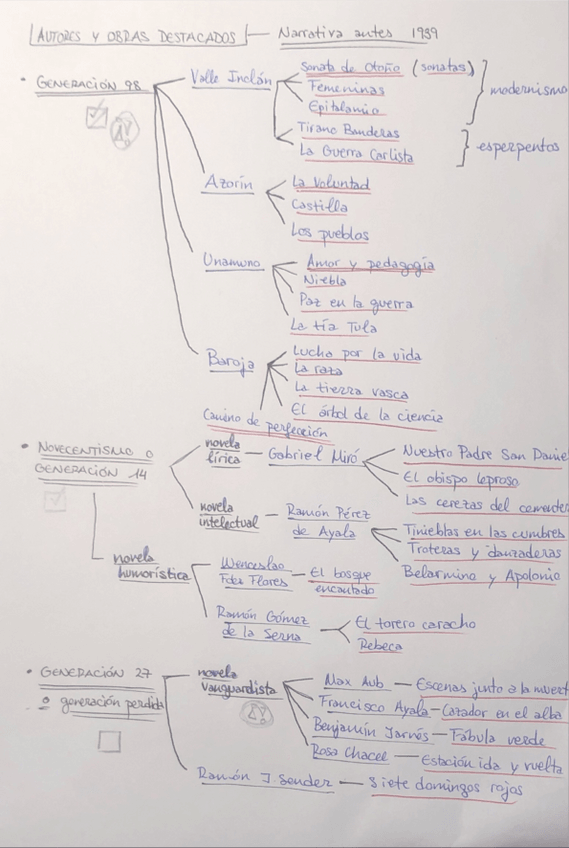 AUTORES Y OBRAS DESTACADOS — Narrativa antes 1939
• GENERACIÓN 98
Valle Inclán
Sonata de Otoño (sonatas)
Femeninas
Epitalamio
modernismo
Tirano Banderas
La Guerra Carlista
esperpentos
Azorín
La Voluntad
Castilla
Los pueblos
Unamuno
Amor y pedagogía
Niebla
Paz en la guerra
La tía Tula
Baroja
Lucha por la vida
La raza
La tierra vasca
El árbol de la ciencia
Camino de perfección
• NOVECENTISMO O
GENERACIÓN 14
novela
lírica — Gabriel Miró
Nuestro Padre San Danie
El obispo leproso
Las cerezas del cementer
novela
intelectual — Ramón Pérez
de Ayala
Tinieblas en las cumbres
Troteras y danzaderas
Belarmino y Apolonio
novela
humorística
Wenceslao
Fdez Flores — El bosque
encantado
Ramón Gómez
de la Serna
El torero caracho
Rebeca
• GENERACIÓN 27
o generación perdida
novela
vanguardista
Max Aub — Escenas junto a la muert
Francisco Ayala — Cazador en el alba
Benjamín Jarnés — Fábula verde
Rosa Chacel — Estación ida y vuelta
Ramón J Sender — Siete domingos rojos